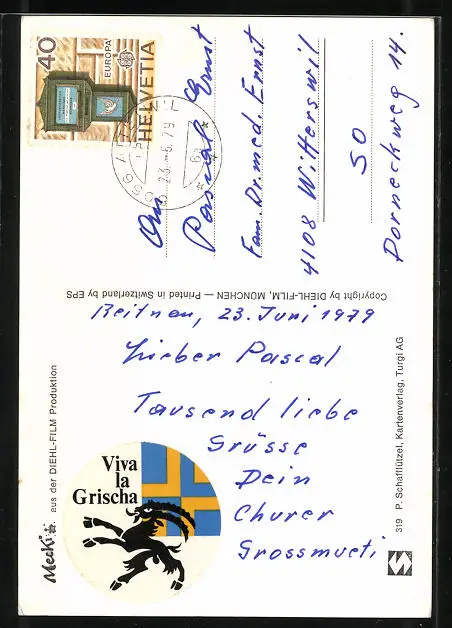 Reitnau, 23. Juni 1979
Lieber Pascal
Tausend liebe
Grüsse
Dein
Churer
Grossmueti
Viva
la
Grischa
Mecki
aus der DIEHL-FILM Produktion
319 P. Schafflützel, Kartenverlag, Turgi AG
Copyright by DIEHL-FILM, MÜNCHEN — Printed in Switzerland by EPS
40
EUROPA
HELVETIA
23.-6.79
An
Pascal Ernst
Fam. Dr. med. Ernst
4108 Witterswil
SO
Dorneckweg 14.